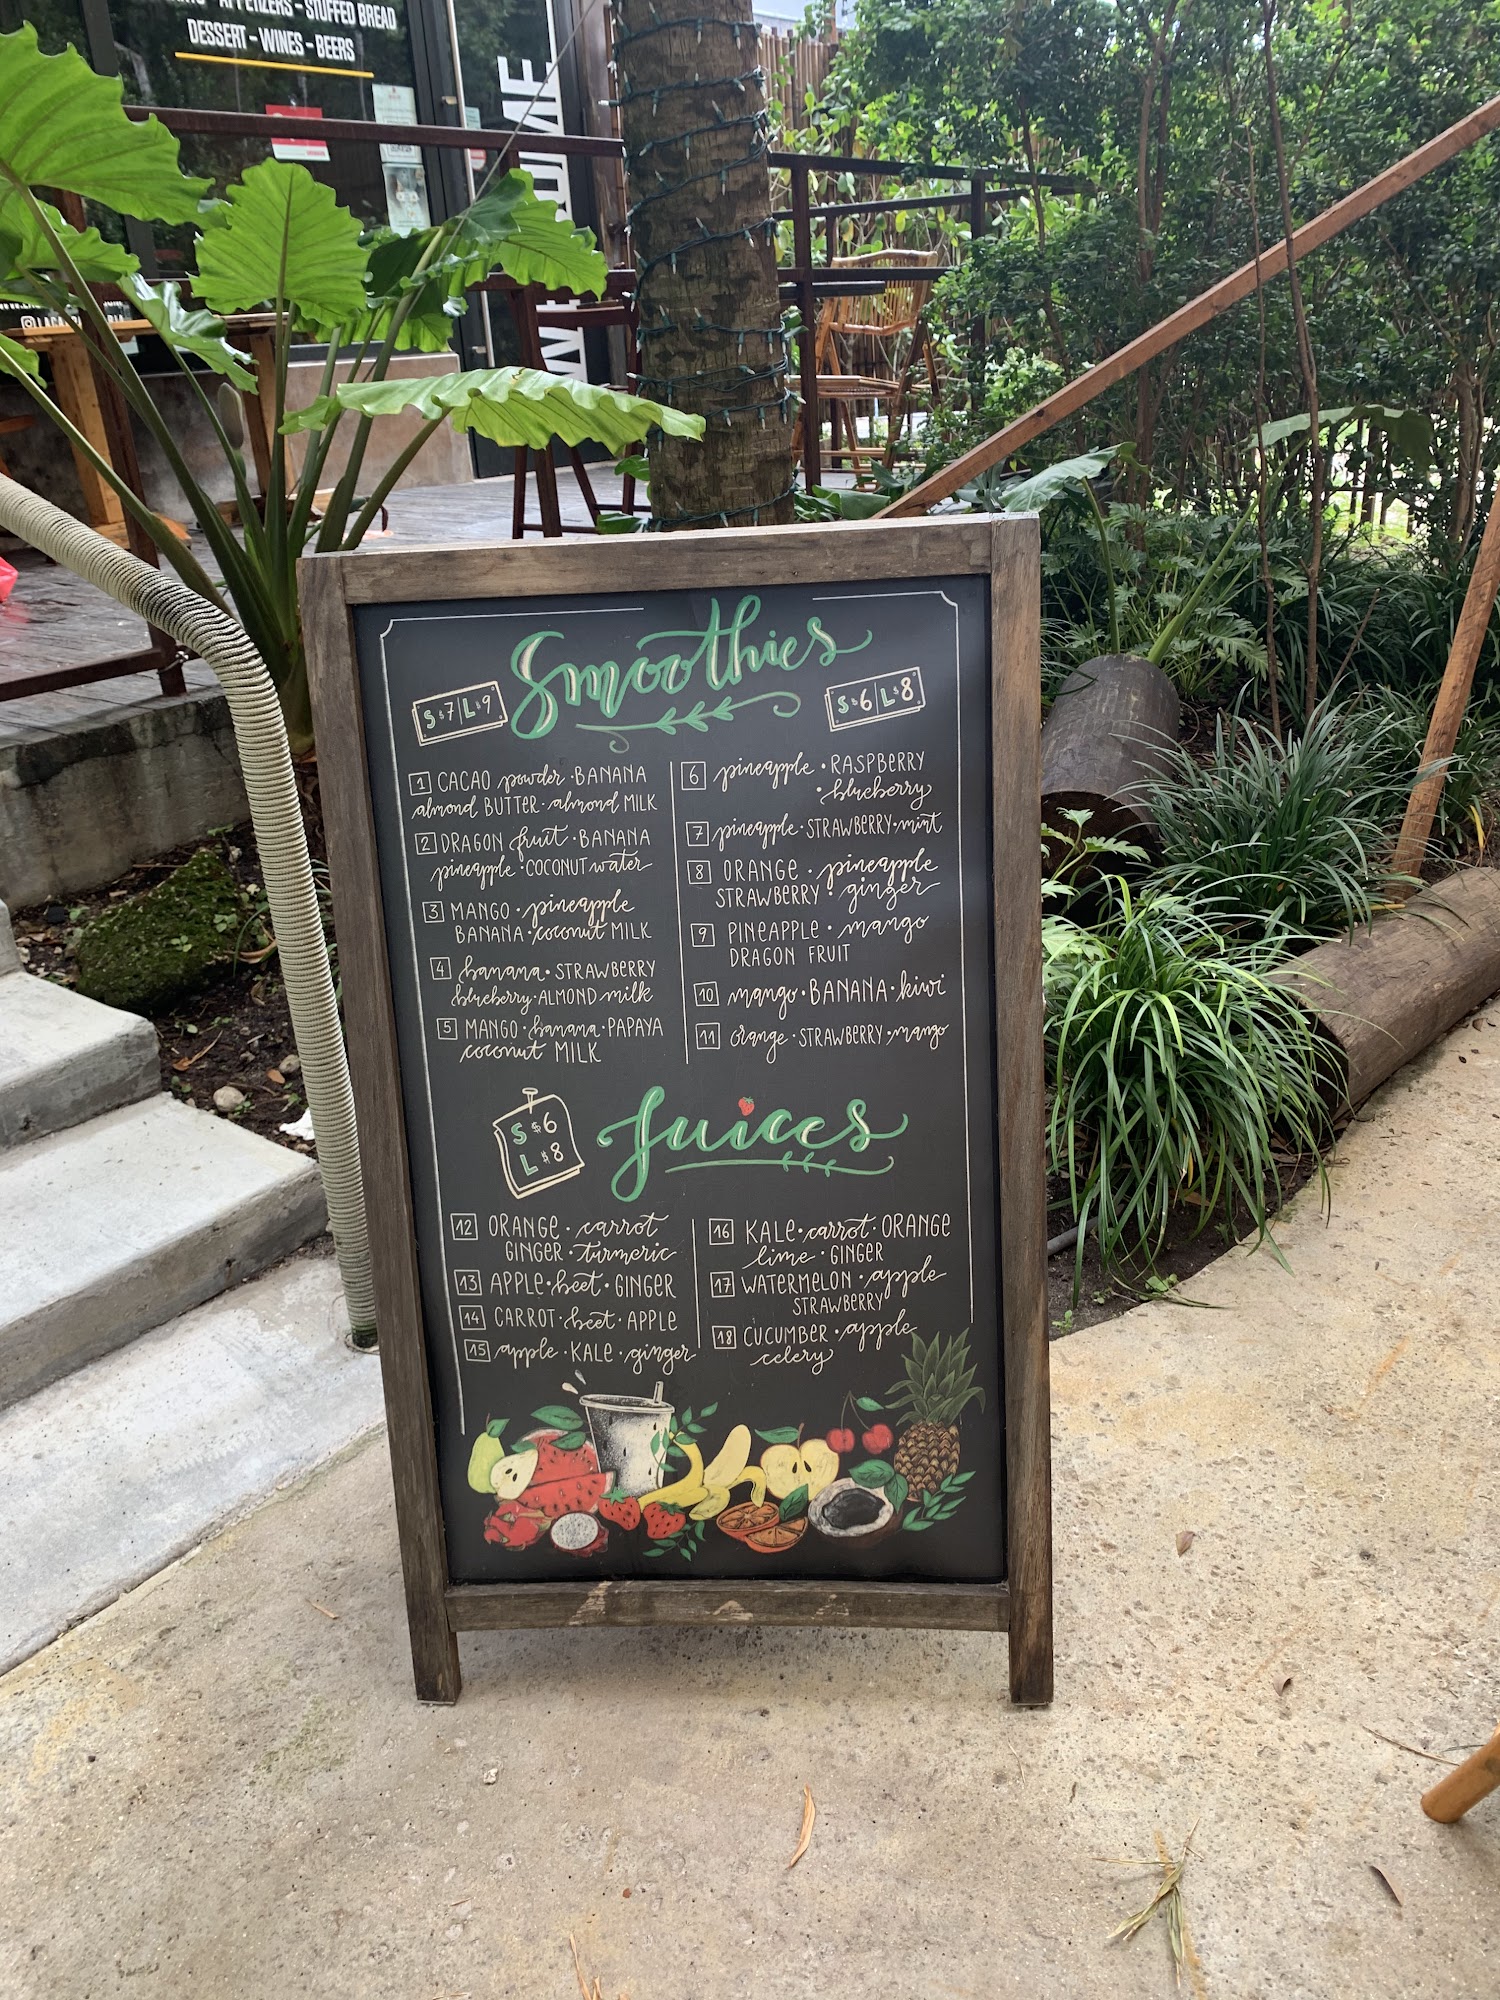 APPETIZERS - STUFFED BREAD
DESSERT - WINES - BEERS
Smoothies
S $7 | L $9
S $6 | L $8
1 CACAO powder · BANANA
almond BUTTER · almond MILK
2 DRAGON fruit · BANANA
pineapple · COCONUT water
3 MANGO · pineapple
BANANA · coconut MILK
4 banana · STRAWBERRY
blueberry · ALMOND milk
5 MANGO · banana · PAPAYA
coconut MILK
6 pineapple · RASPBERRY
· blueberry
7 pineapple · STRAWBERRY · mint
8 ORANGE · pineapple
STRAWBERRY · ginger
9 PINEAPPLE · mango
DRAGON FRUIT
10 mango · BANANA · kiwi
11 orange · STRAWBERRY · mango
Juices
S $6
L $8
12 ORANGE · carrot
GINGER · turmeric
13 APPLE · beet · GINGER
14 CARROT · beet · APPLE
15 apple · KALE · ginger
16 KALE · carrot · ORANGE
lime · GINGER
17 WATERMELON · apple
STRAWBERRY
18 CUCUMBER · apple
celery